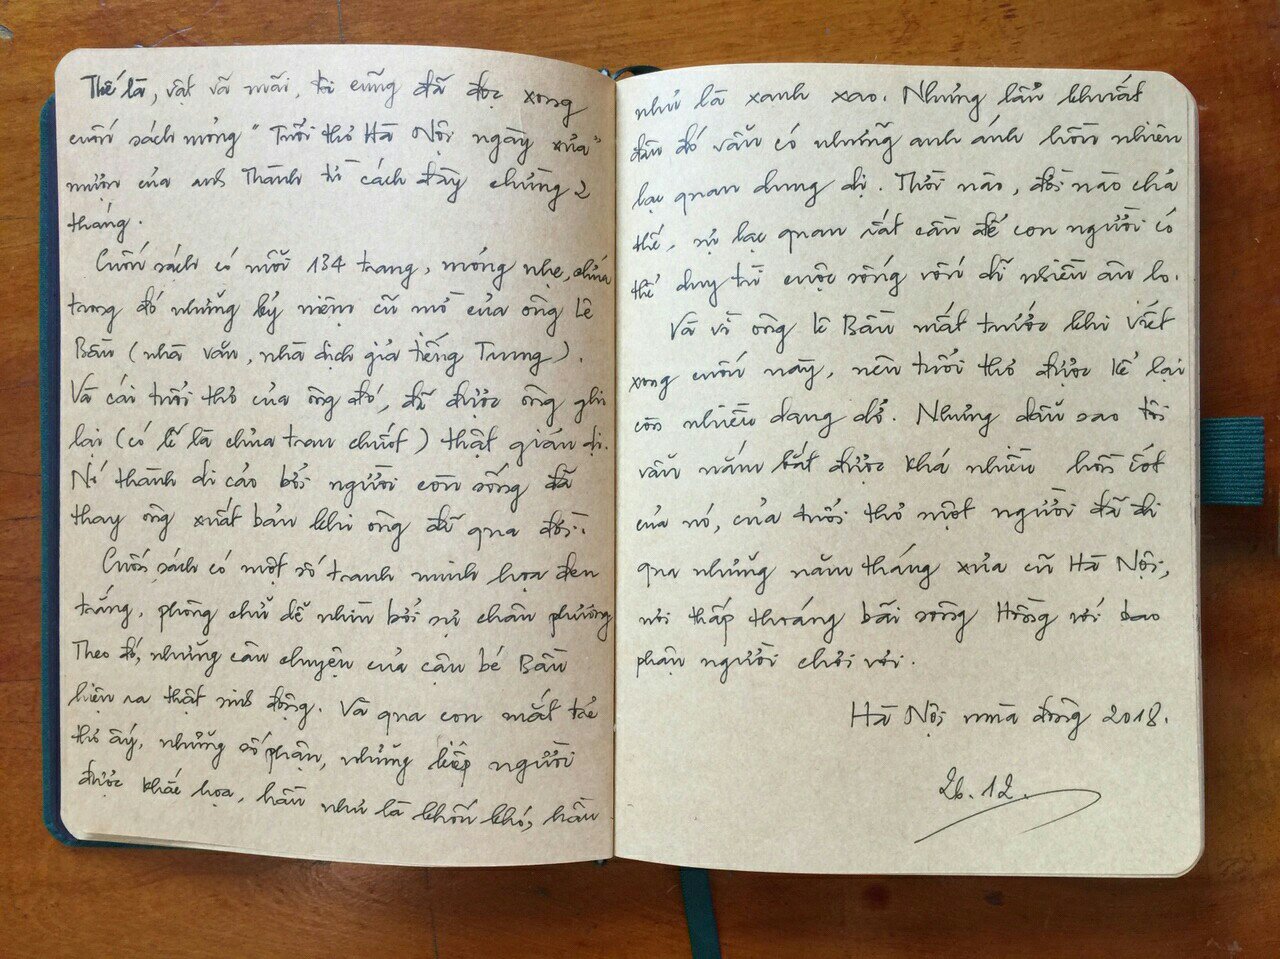 Thế là, vật vã mãi, tôi cũng đã đọc xong
cuốn sách mỏng "Tuổi thơ Hà Nội ngày xưa"
mượn của anh Thành từ cách đây chừng 2
tháng.
Cuốn sách có mỗi 134 trang, mỏng nhẹ, chứa
trong đó những kỷ niệm cũ mờ của ông Lê
Bầu (nhà văn, nhà dịch giả tiếng Trung).
Và cái tuổi thơ của ông đó, đã được ông ghi
lại (có lẽ là chưa trau chuốt) thật giản dị.
Nó thành di cảo bởi người còn sống đã
thay ông xuất bản khi ông đã qua đời.
Cuốn sách có một số tranh minh họa đen
trắng, phông chữ dễ nhìn bởi sự chân phương
Theo đó, những câu chuyện của cậu bé Bầu
hiện ra thật sinh động. Và qua con mắt trẻ
thơ ấy, những số phận, những kiếp người
được khắc họa, hầu như là khốn khó, hầu
như là xanh xao. Nhưng lẩn khuất
đâu đó vẫn có những anh ánh hồn nhiên
lạc quan dung dị. Thời nào, đời nào chả
thế, sự lạc quan rất cần để con người có
thể duy trì cuộc sống vốn dĩ nhiều âu lo.
Và vì ông Lê Bầu mất trước khi viết
xong cuốn này, nên tuổi thơ được kể lại
còn nhiều dang dở. Nhưng dẫu sao tôi
vẫn nắm bắt được khá nhiều hồn cốt
của nó, của tuổi thơ một người đã đi
qua những năm tháng xưa cũ Hà Nội,
nơi thấp thoáng bãi sông Hồng với bao
phận người chơi vơi.
Hà Nội mùa đông 2018.
26.12.